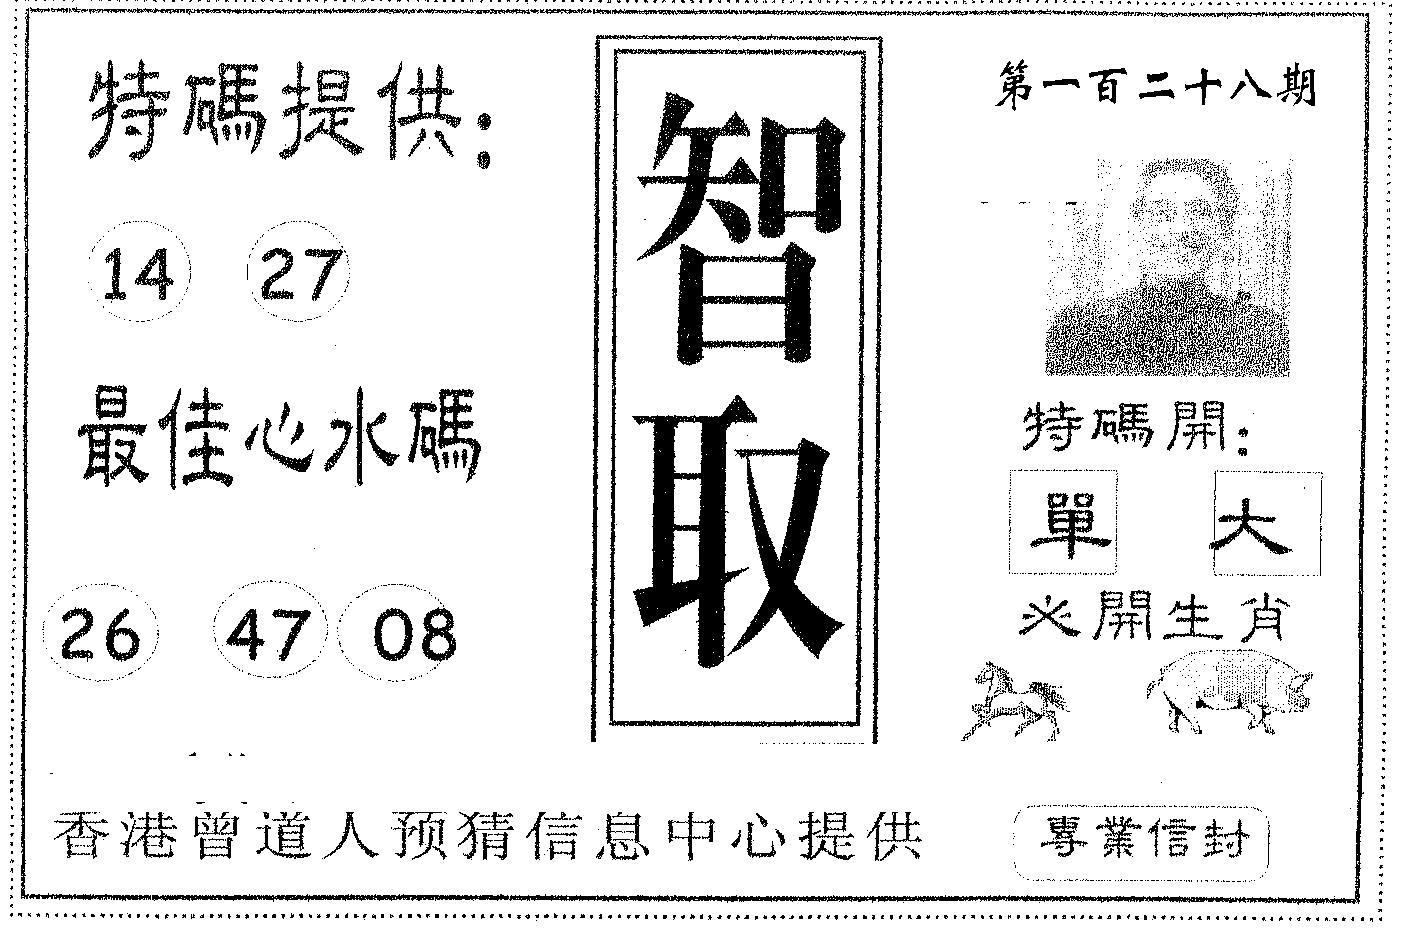 特碼提供：
14 27
最佳心水碼
26 47 08
智取
第一百二十八期
特碼開：
單 大
必開生肖
香港曾道人预猜信息中心提供
專業信封